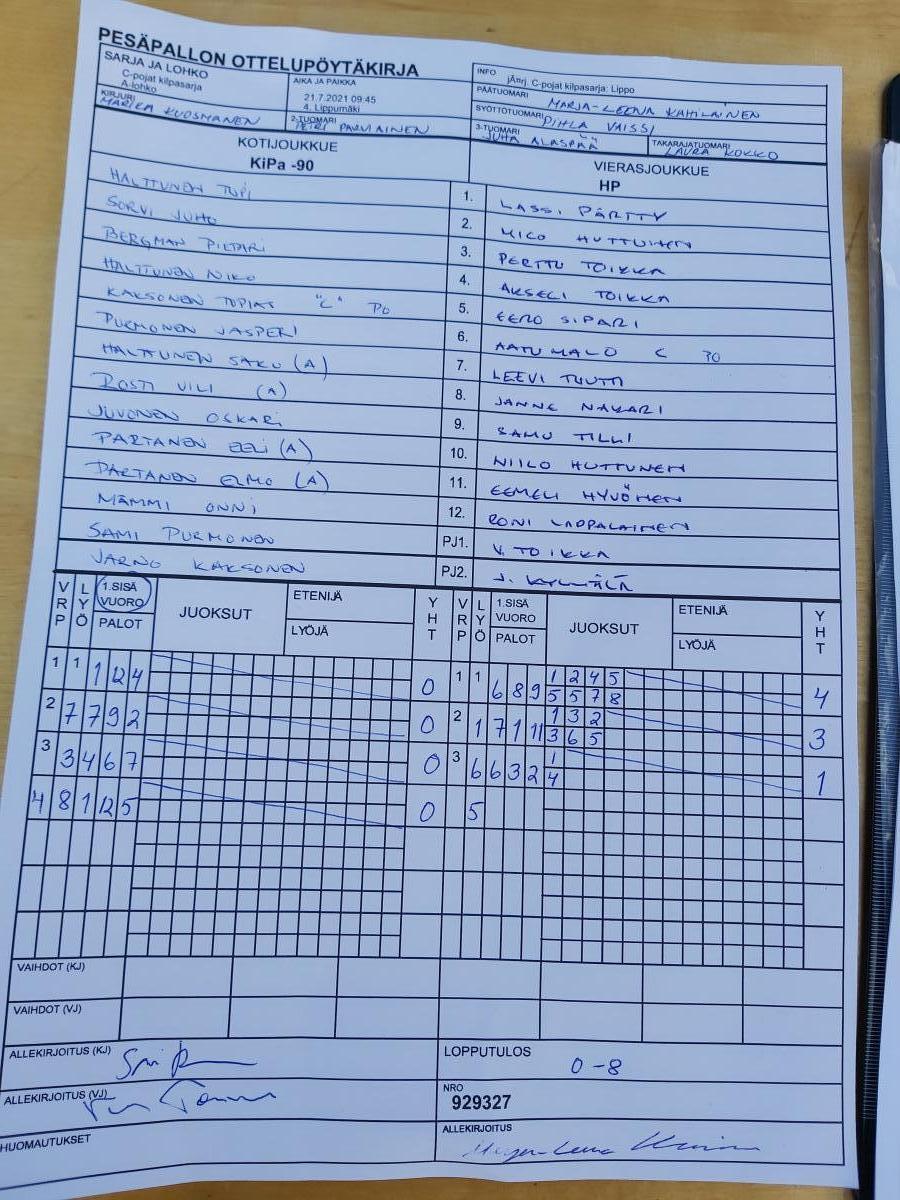 PESÄPALLON OTTELUPÖYTÄKIRJA
SARJA JA LOHKO
C-pojat kilpasarja
A-lohko
AIKA JA PAIKKA
21.7.2021 09:45
4. Lippumäki
INFO
jÄnrj. C-pojat kilpasarja: Lippo
PÄÄTUOMARI MARJA-LEENA KAHILAINEN
KIRJURI
MARIKA KUOSMANEN
2-TUOMARI
PETRI PARVIAINEN
SYÖTTÖTUOMARI PIHLA VAISSI
3-TUOMARI
JUHA ALASPÄÄ
TAKARAJATUOMARI
LAURA KOKKO
KOTIJOUKKUE
KiPa -90
VIERASJOUKKUE
HP
HALTTUNEN TOPI 1. LASSI PÄRTTY
SORVI JUHO 2. NICO HUTTUNEN
BERGMAN PIETARI 3. PERTTU TOIKKA
HALTTUNEN NIKO 4. AKSELI TOIKKA
KAKSONEN TOPIAS "C" PO 5. EERO SIPARI
PURMONEN JASPERI 6. AATU MALO C 70
HALTTUNEN SAKU (A) 7. LEEVI TUUTTI
ROSTI VILI (A) 8. JANNE NAKARI
JUVONEN OSKARI 9. SAMU TILLI
PARTANEN EELI (A) 10. NIILO HUTTUNEN
PARTANEN ELMO (A) 11. EEMELI HYVÖNEN
MÄMMI ONNI 12. RONI LAPPALAINEN
SAMI PURMONEN PJ1. V. TOIKKA
JARNO KAKSONEN PJ2. J. KYLMÄLÄ
VRP LYÖ 1.SISÄ VUORO PALOT JUOKSUT ETENIJÄ LYÖJÄ YHT VRP LYÖ 1.SISÄ VUORO PALOT JUOKSUT ETENIJÄ LYÖJÄ YHT
1 1 1 12 4 0 1 1 6 8 9 1 2 4 5 4
5 5 7 8
2 7 7 9 2 0 2 1 7 1 11 1 3 2 3
3 6 5
3 3 4 6 7 0 3 6 6 3 2 1 1
4
4 8 1 12 5 0 5
VAIHDOT (KJ)
VAIHDOT (VJ)
ALLEKIRJOITUS (KJ)
LOPPUTULOS
0 - 8
ALLEKIRJOITUS (VJ)
NRO
929327
HUOMAUTUKSET
ALLEKIRJOITUS